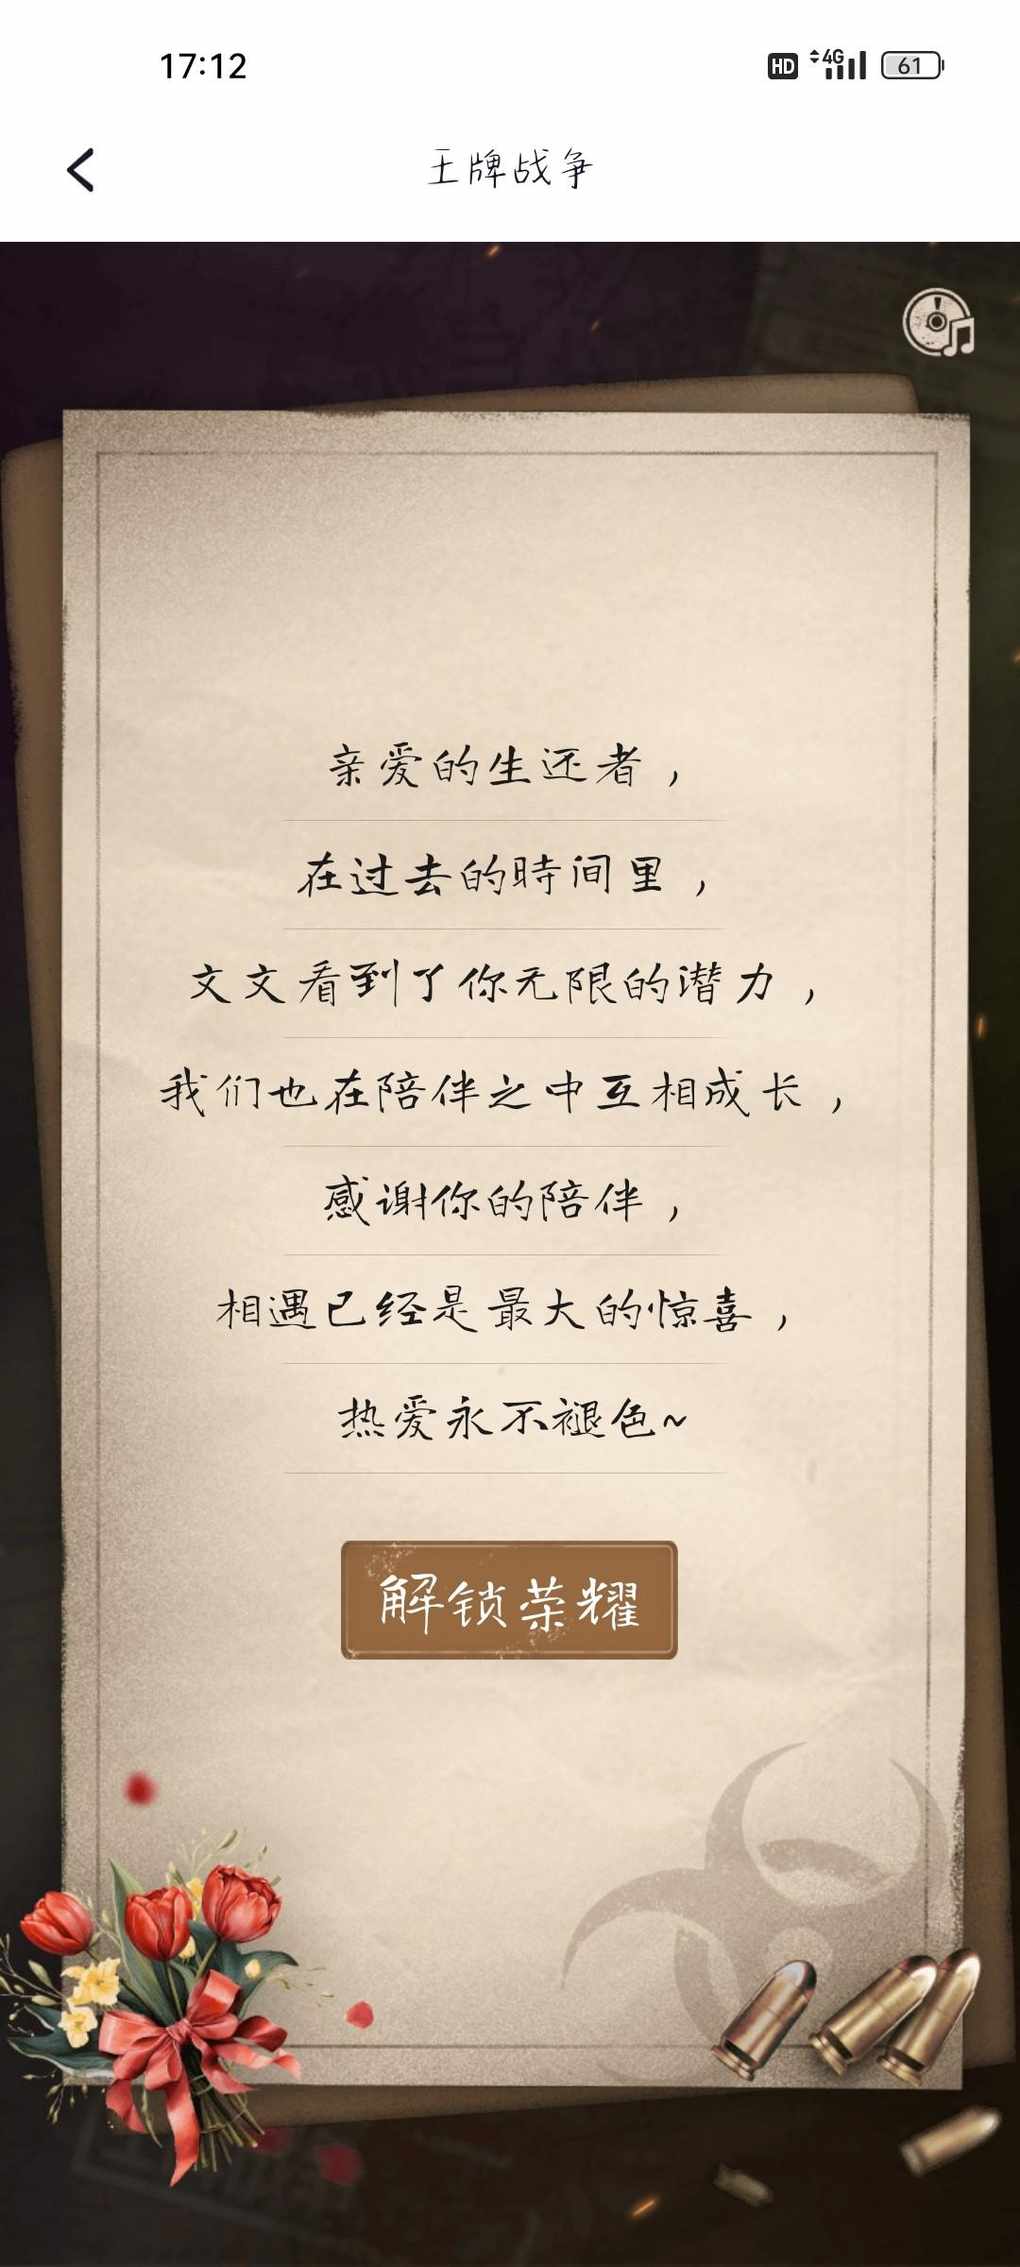 17:12
HD 4G 61
王牌战争
亲爱的生还者，
在过去的時间里，
文文看到了你无限的潜力，
我们也在陪伴之中互相成长，
感谢你的陪伴，
相遇已经是最大的惊喜，
热爱永不褪色~
解锁荣耀